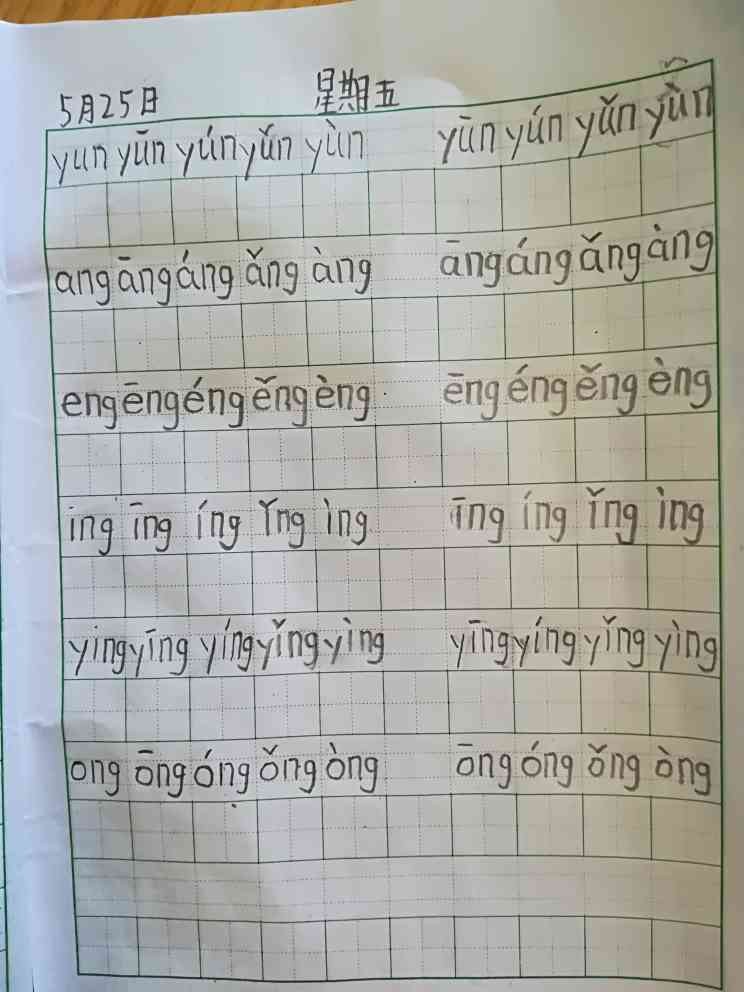 5月25日 星期五
yun yūn yún yǔn yùn yūn yún yǔn yùn
ang āng áng ǎng àng āng áng ǎng àng
eng ēng éng ěng èng ēng éng ěng èng
ing īng íng ǐng ìng īng íng ǐng ìng
ying yīng yíng yǐng yìng yīng yíng yǐng yìng
ong ōng óng ǒng òng ōng óng ǒng òng